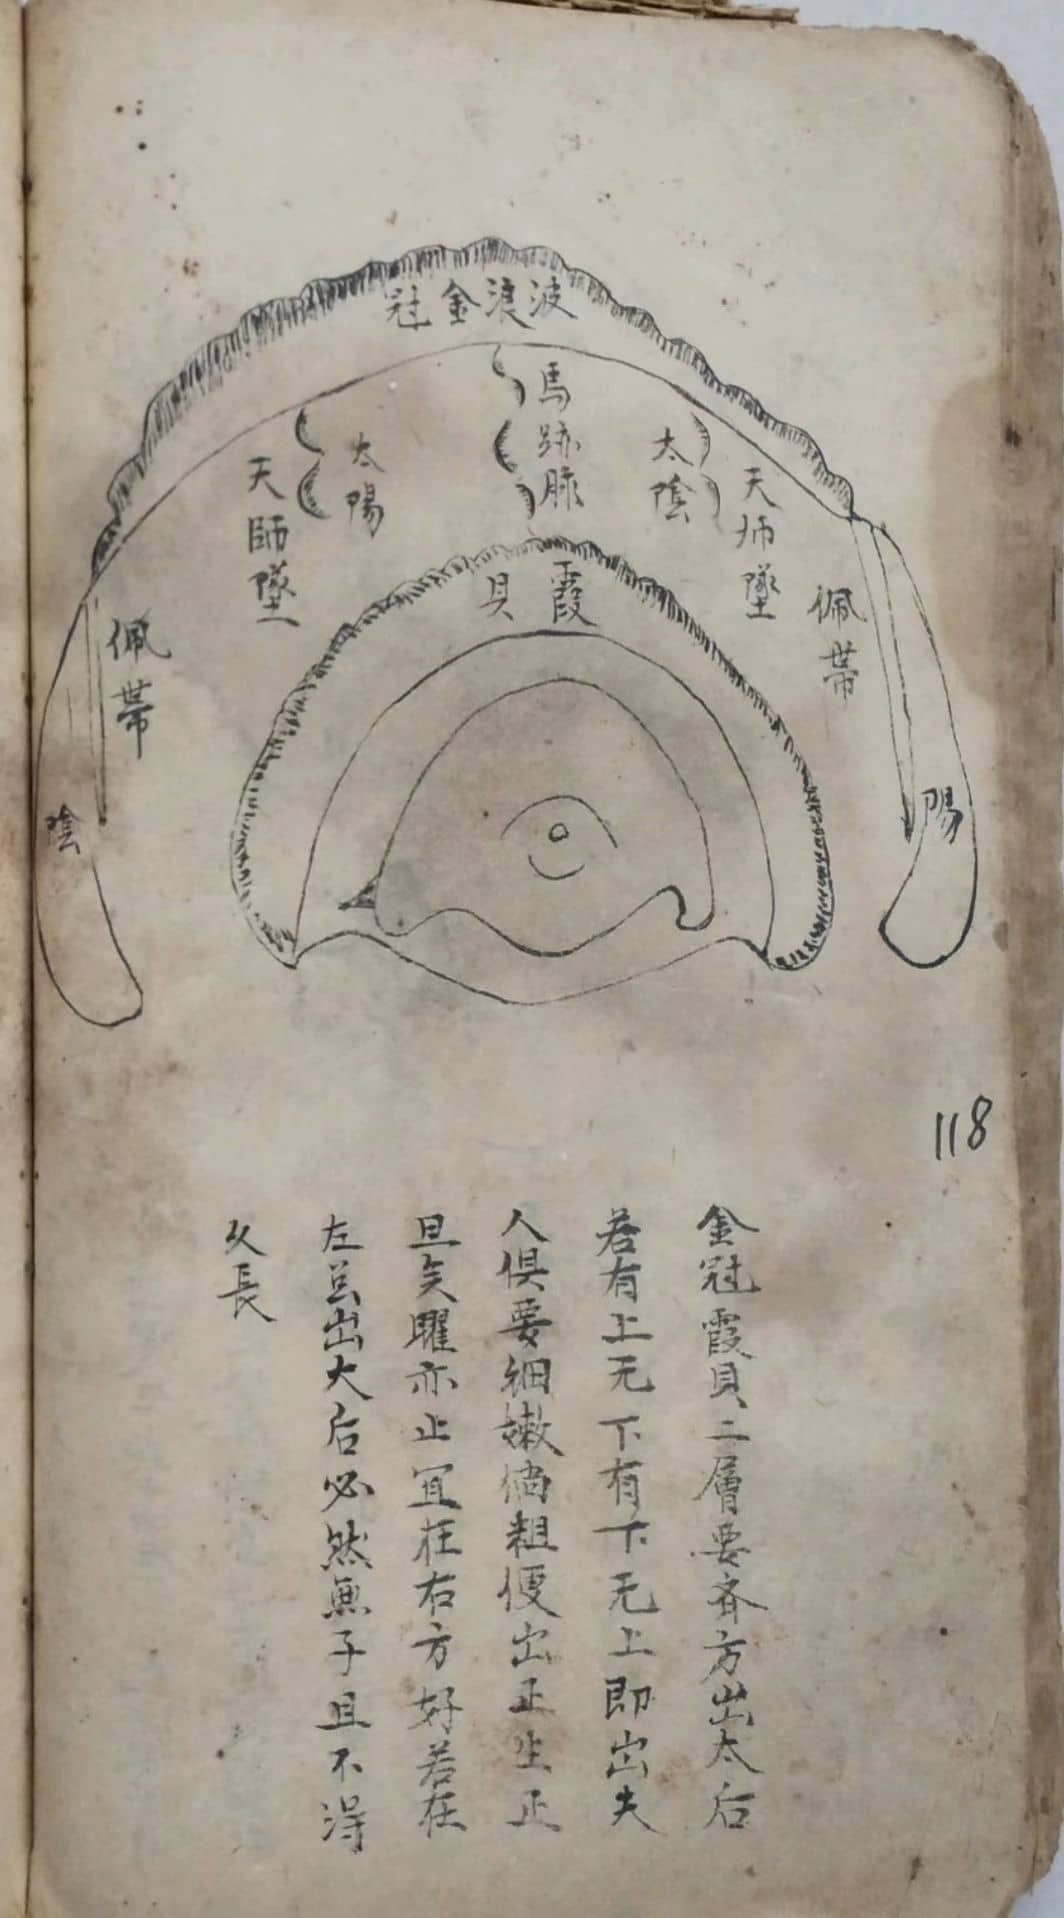 波浪金冠
馬跡脉
太陰
天师墜
佩帯
陽
霞貝
太陽
天師墜
佩帯
陰
118
金冠霞貝二層要齐方出太后
若有上无下有下无上即出夫
人俱要細嫩倘粗便出正生正
旦矣曜亦止宜在右方好若在
左旦出大后必然無子且不得
久長